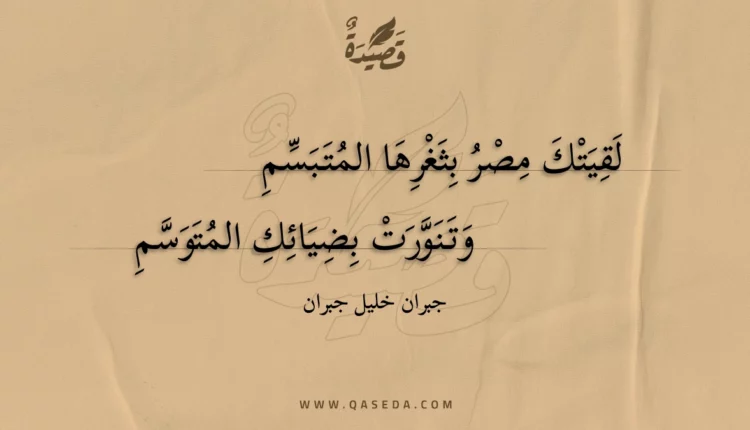 قَصِيدَةٌ
لَقِيَتْكَ مِصْرُ بِثَغْرِهَا المُتَبَسِّمِ
وَتَنَوَّرَتْ بِضِيَائِكِ المُتَوَسَّمِ
جبران خليل جبران
WWW.QASEDA.COM